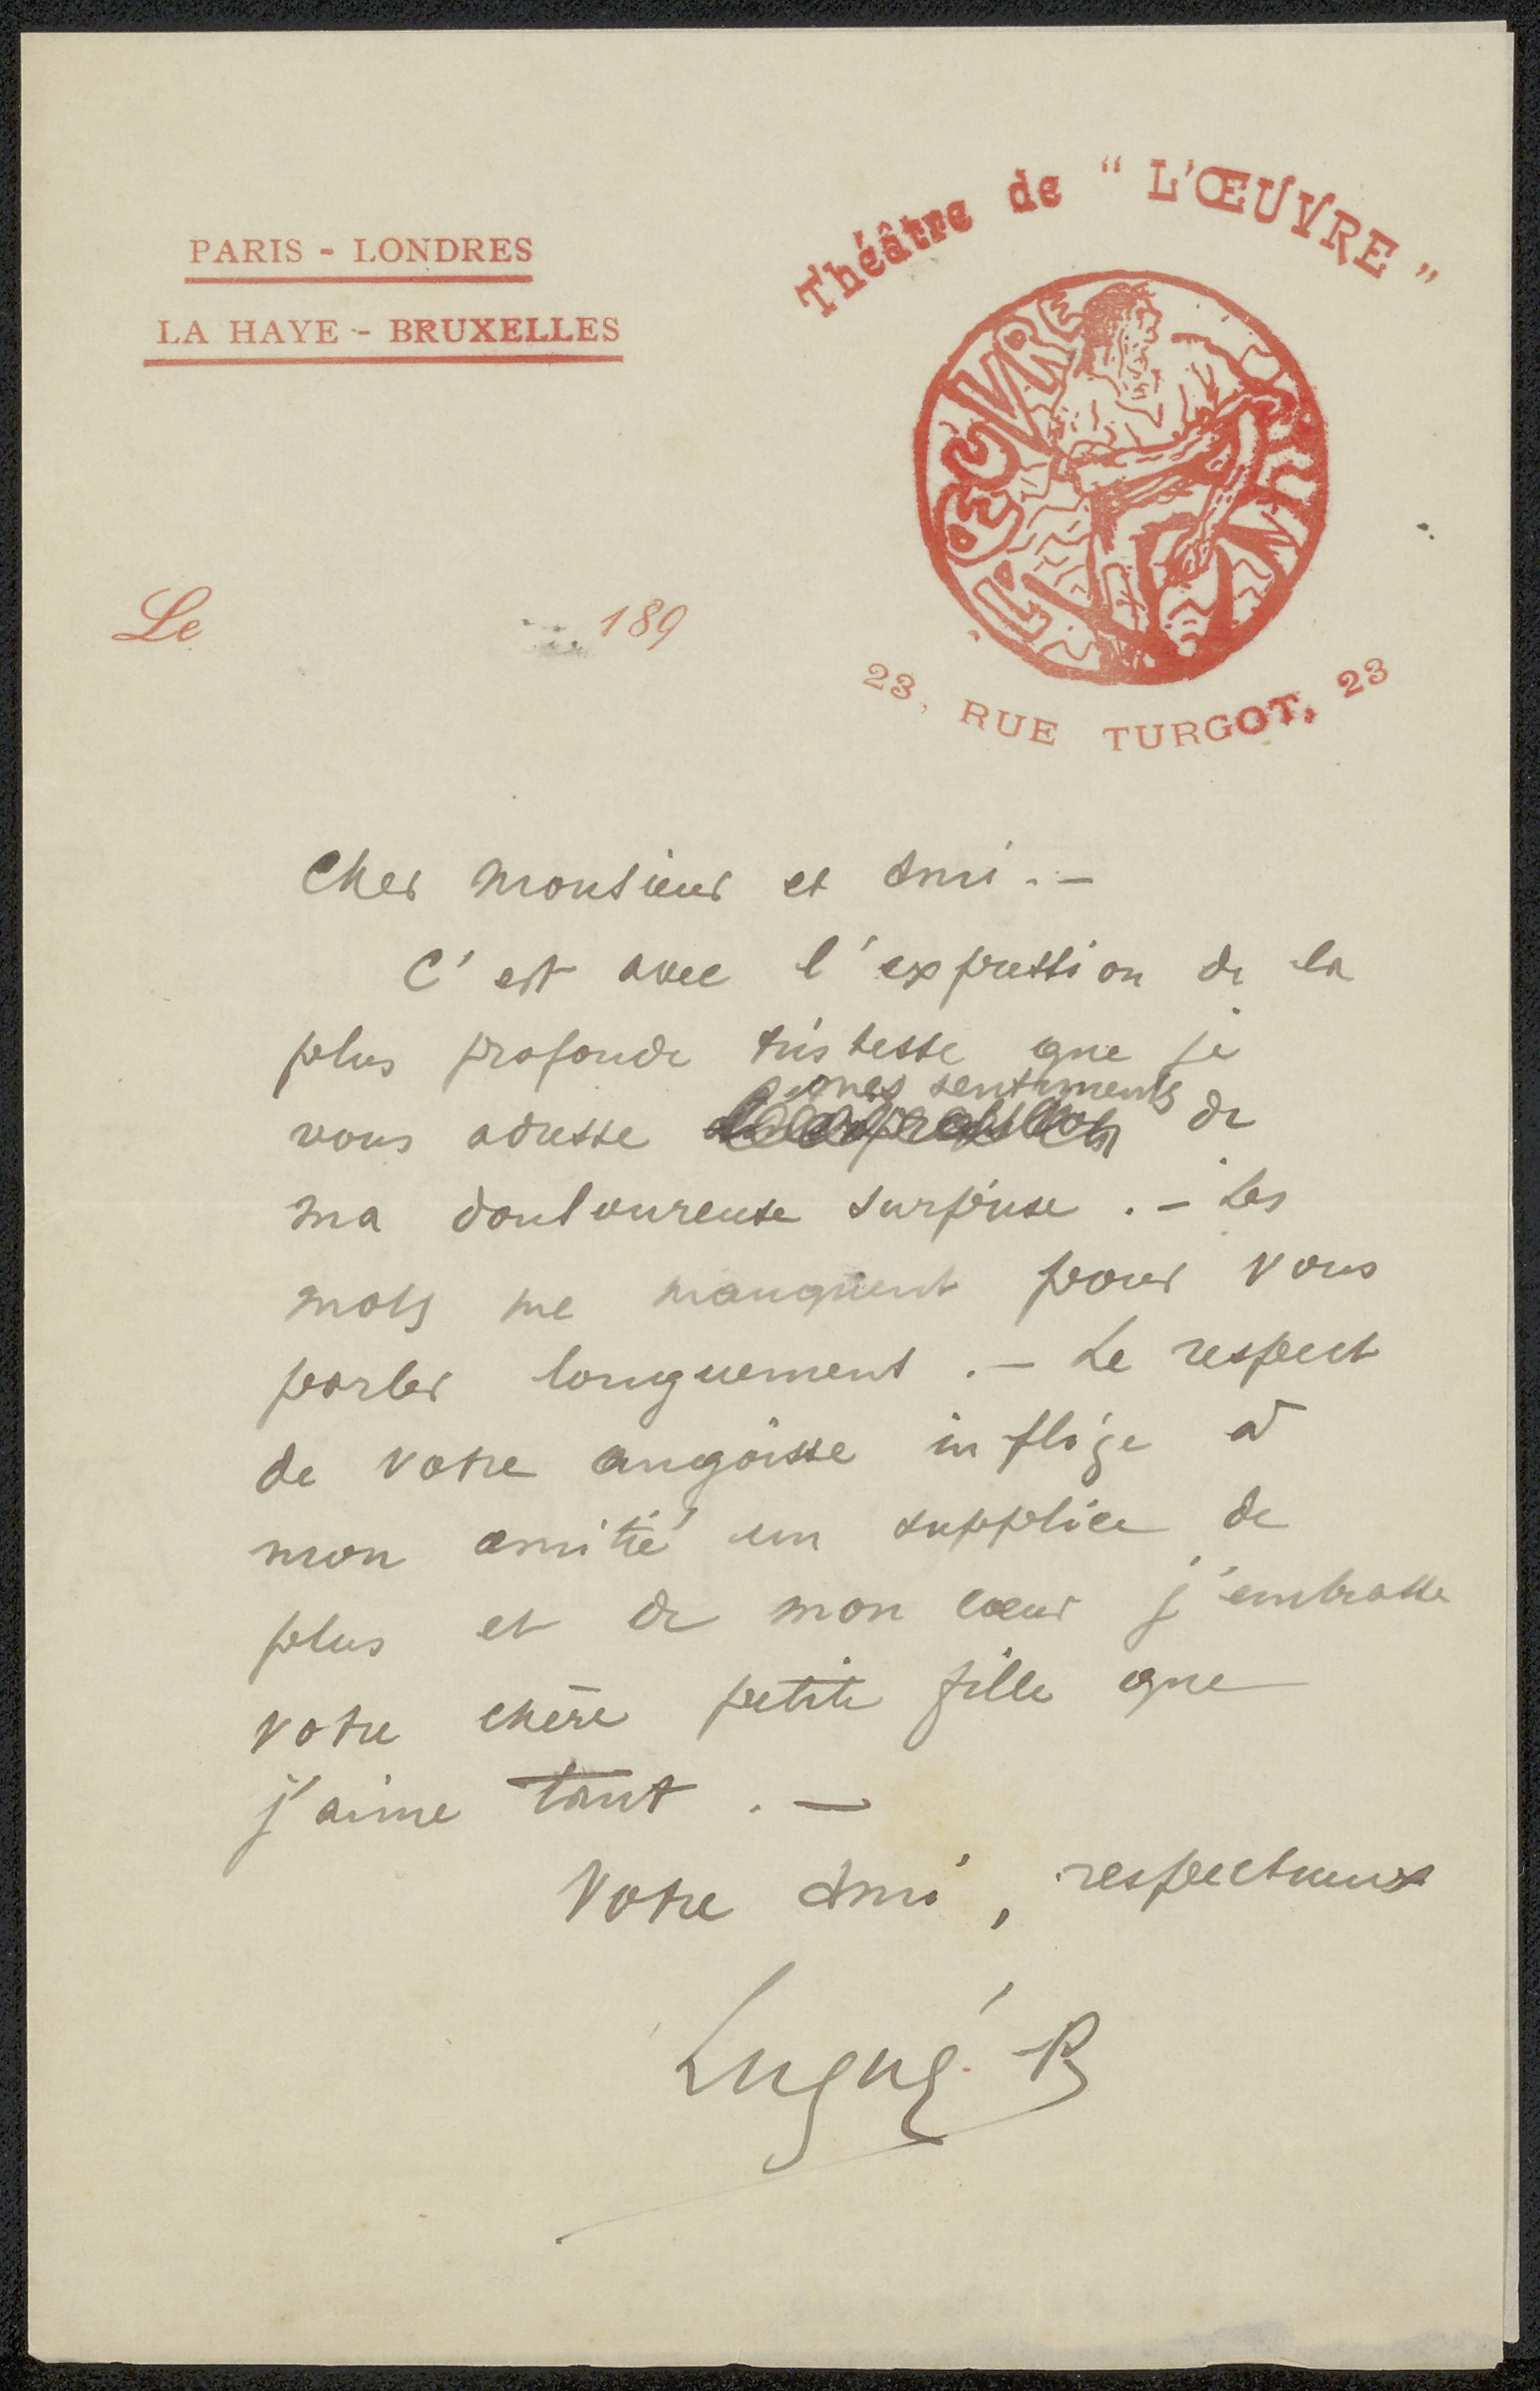 PARIS - LONDRES
LA HAYE - BRUXELLES
Théâtre de "L'ŒUVRE"
L'ŒUVRE
23, RUE TURGOT, 23
Le 189
Cher Monsieur et Ami. —
C'est avec l'expression de la
plus profonde tristesse que je
mes sentiments
vous adresse l'expression de
ma douloureuse surprise. — Les
mots me manquent pour vous
parler longuement. — Le respect
de votre angoisse inflige à
mon amitié un supplice de
plus et de mon cœur j'embrasse
votre chère petite fille que
j'aime tant. —
Votre Ami, respectueux
Lugné P